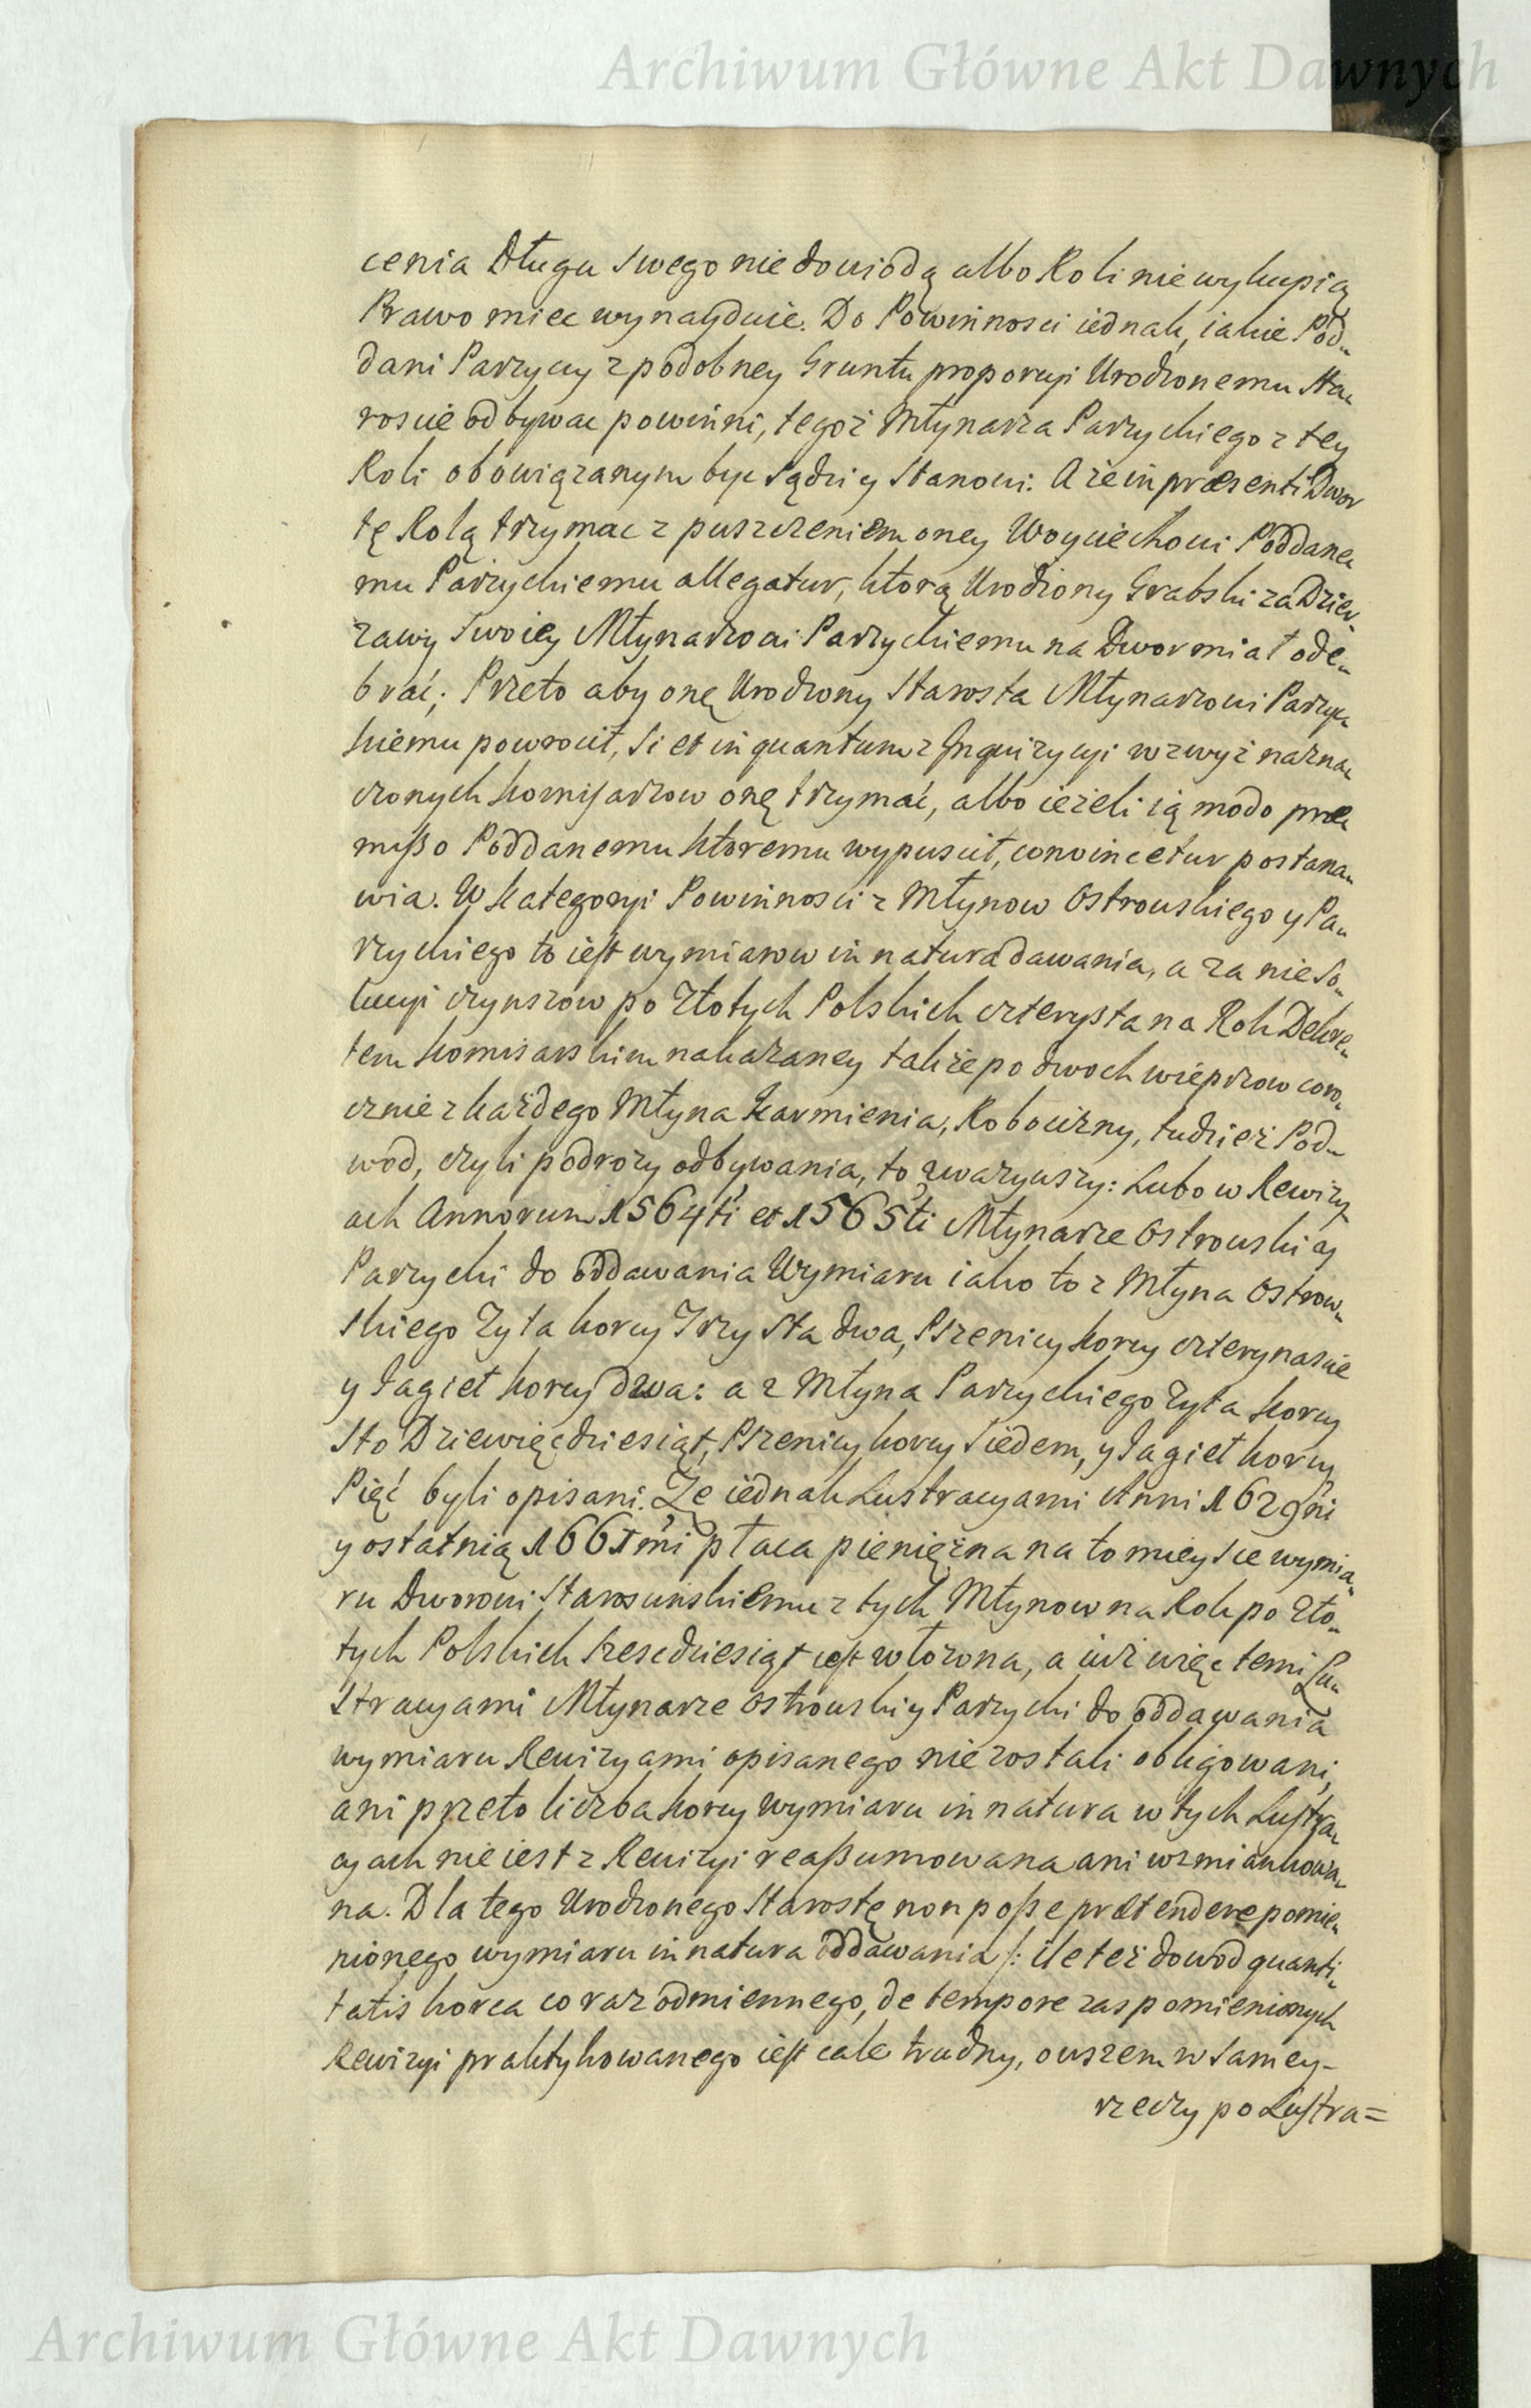 Archiwum Główne Akt Dawnych
cenia Długu swego nie dowiodą albo Roli nie wykupią
Prawo miec wynayduie. Do Powinnosci iednak, iakie Pod„
dani Parzyccy z podobney Gruntu proporcyi Urodzonemu Sta„
roscie odbywac powinni, tegoż Młynarza Parzyckiego z tey
Roli obowiązanym byc sądzi y stanowi. A że in præsenti Dwor
tę Rolą trzymac z puszczeniem oney Woyciechowi Poddane„
mu Parzyckiemu allegatur, ktorą Urodzony Grabski za Dzier„
zawy swoiey Młynarzowi Parzyckiemu na Dwor miał ode„
brać; Przeto aby onę Urodzony Starosta Młynarzowi Parzyc„
kiemu powrocił, si et in quantum z Inquizycyi wzwyż nazna„
czonych kommisarzow onę trzymać, albo ieżeli ią modo præ„
misso Poddanemu ktoremu wypuscił, convincetur postana„
wia. W kategoryi Powinnosci z Młynow Ostrowskiego y Pa„
rzyckiego to iest wymiarow in natura dawania, a za nie so„
lucyi czynszow po Złotych Polskich czterysta na Rok Dekre„
tem kommisarskim nakazaney także po dwoch wieprzow coro„
cznie z każdego Młyna karmienia, Robocizny, tudzież Pod„
wod, czyli podrozy odbywania, to zwazywszy: Lubo w Rewizy
ach Annorum 1564ti et 1565ti Młynarze Ostrowski y
Parzycki do oddawania Wymiaru iako to z Młyna Ostrow„
skiego Zyta korcy Trzysta dwa, Pszenicy korcy czterynascie
y Jagieł korcy dwa: a z Młyna Parzyckiego Zyta korcy
Sto Dziewięcdziesiąt, Pszenicy korcy siedem, y Jagieł korcy
Pięć byli opisani. Że iednak Lustracyami Anni 1629ni
y ostatnią 1661mi płaca pieniężna na to mieysce wymia„
ru Dworowi Staroscinskiemu z tych Młynow na Rok po Zło„
tych Polskich szescdziesiąt iest włożona, a iuż więc temi Lu„
stracyami Młynarze Ostrowski y Parzycki do oddawania
wymiaru Rewizyami opisanego nie zostali obligowani,
ani przeto liczba korcy wymiaru in natura w tych Lustra„
cyach nie iest z Rewizyi reassumowana ani wzmiankowa„
na. Dla tego Urodzonego Starostę non posse prætendere pomie„
nionego wymiaru in natura oddawania /: ile też dowod quanti„
tatis korca coraz odmiennego, de tempore zas pomienionych
Rewizyi praktykowanego iest cale trudny, owszem w samey-
rzeczy po Lustra=
Archiwum Główne Akt Dawnych